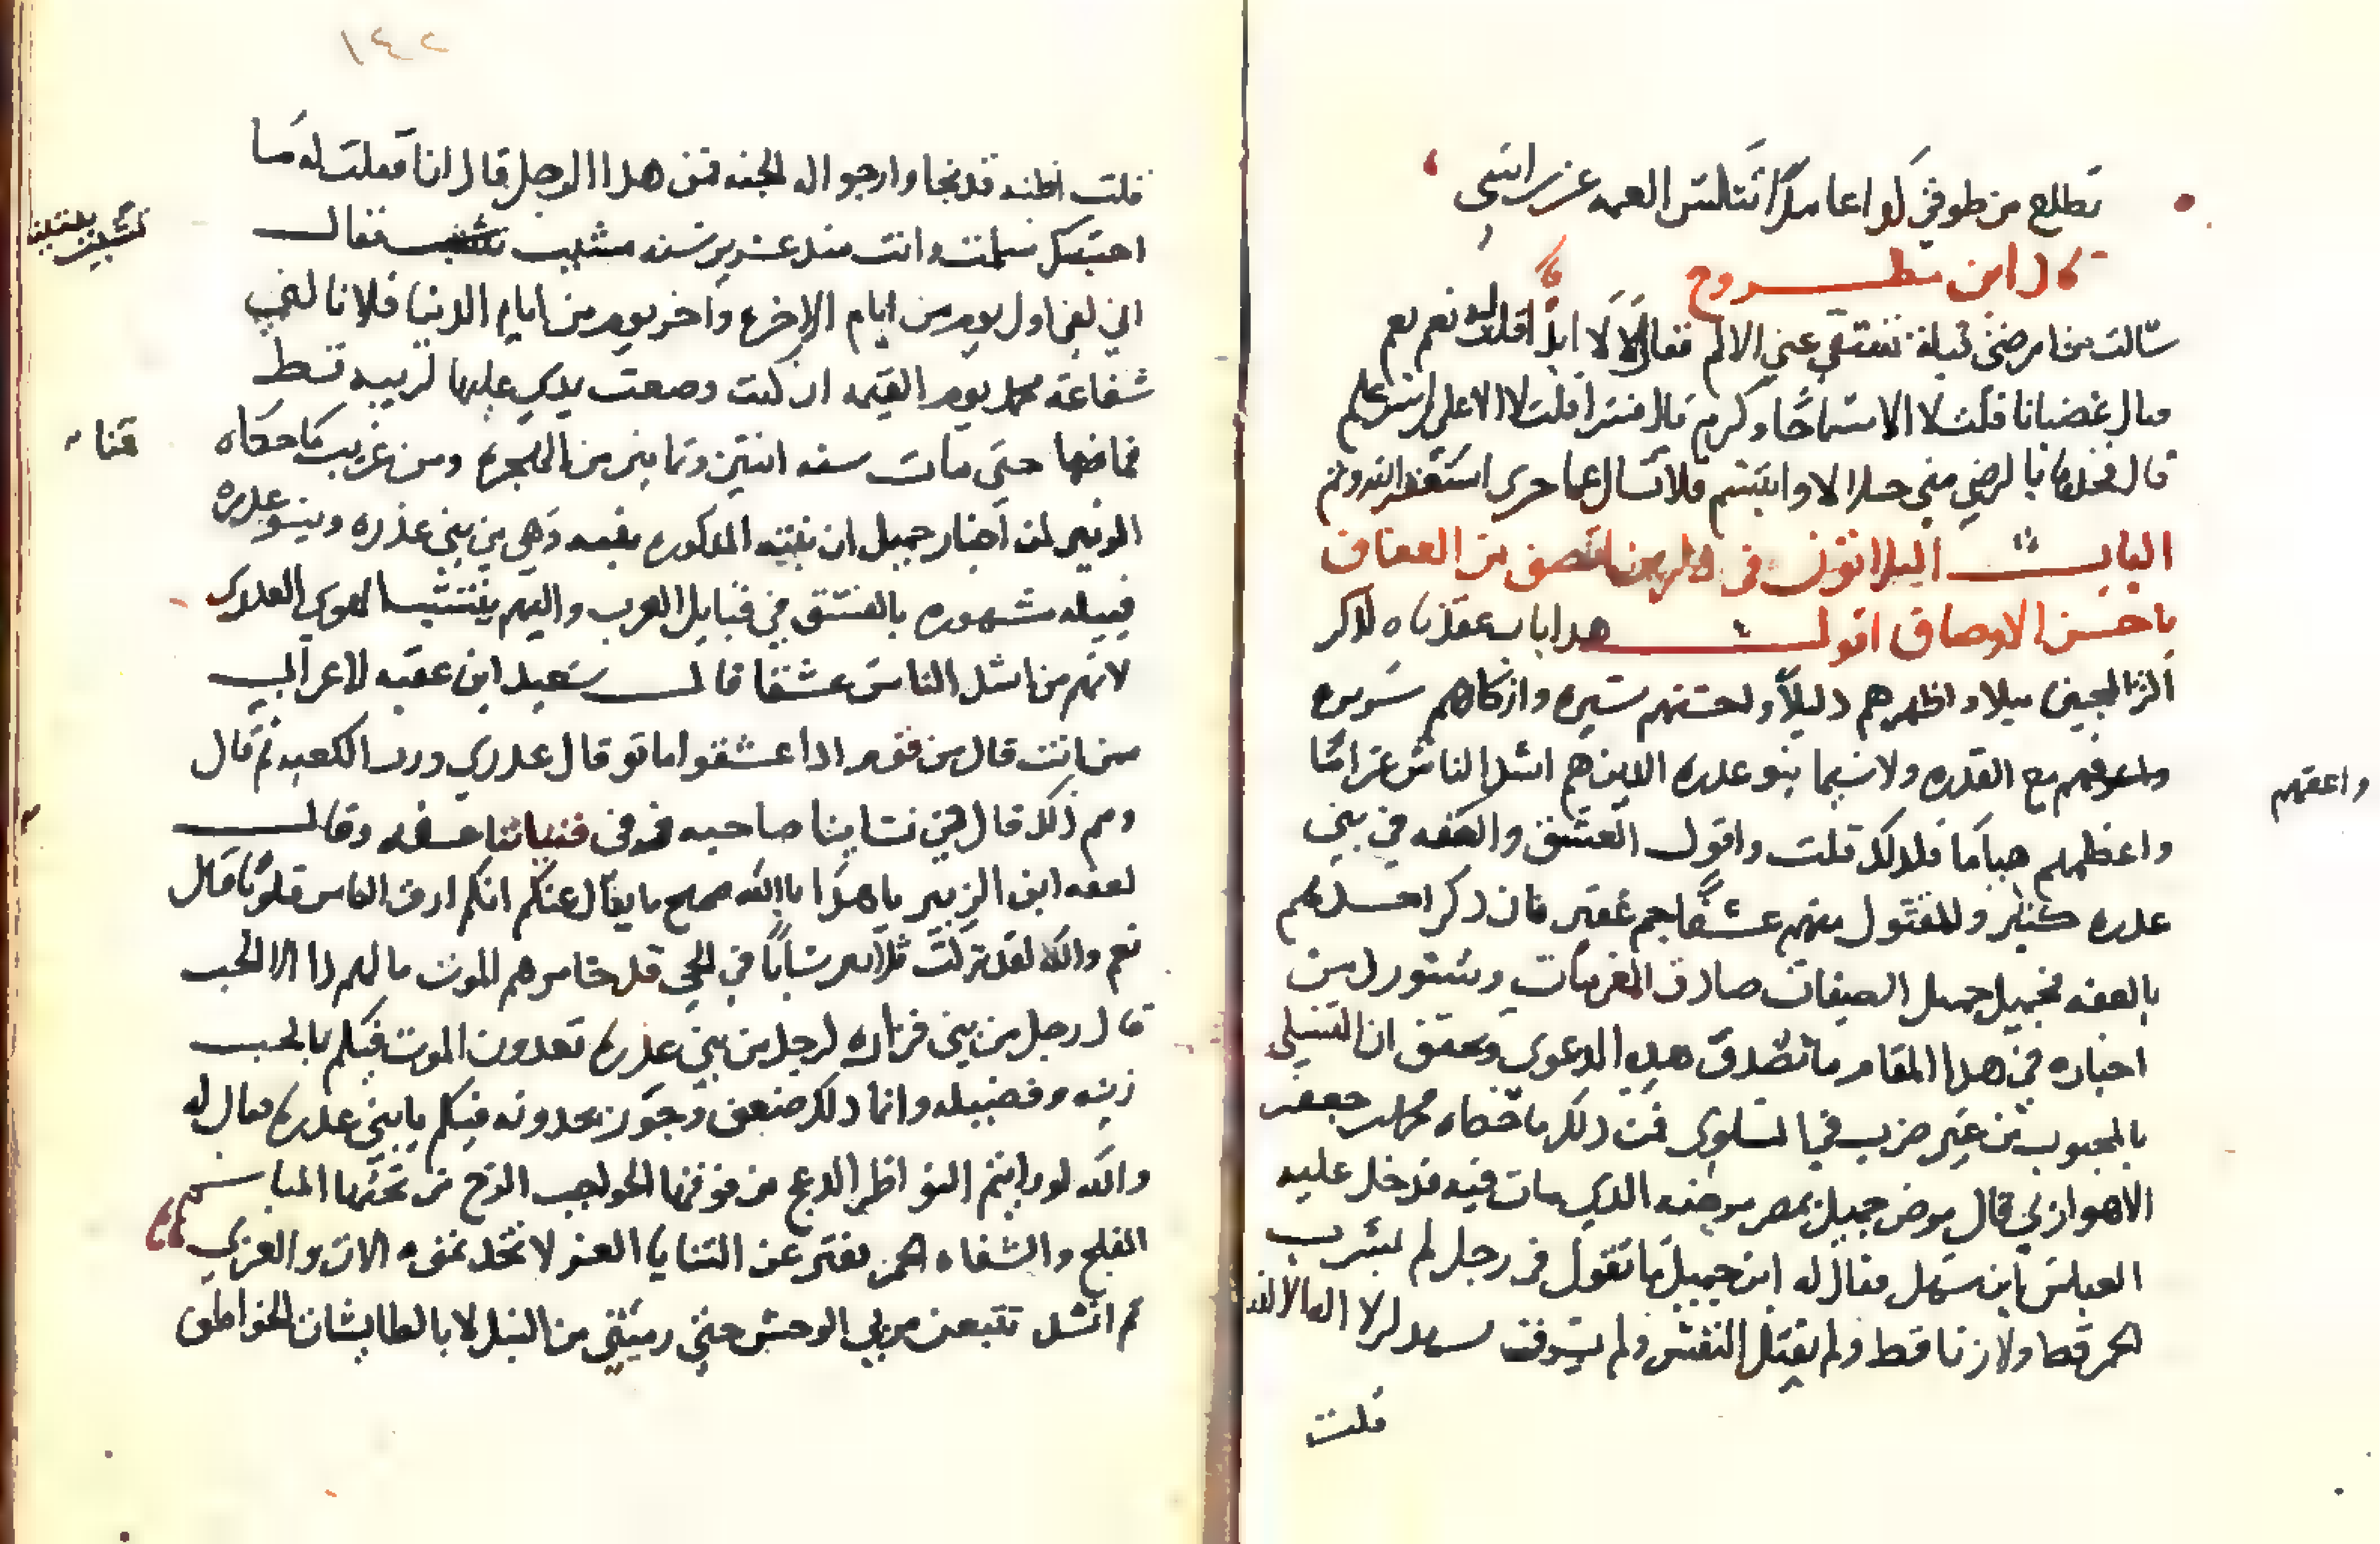 تطلع من طوقي كدا عامدا تتلمس العمه عزرانتهى
قال ابن مطروح
سالت من امرضني قبلة تشتفي عني الالم فقال لا لا لا ابدا قلت له نعم نعم
قال غضبانا قلت لا الا سماحا وكرم قال فسرا قلت لا الا على راس علم
قال فخدها بالرضى مني حلالا وابتسم فلا تسال عما جرى استغفر الله ونم
الباب الثلاثون في ذكر من اتصف من العفاف
باحسن الاوصاف اقول هدا باب عقدناه لذكر
الزالمحبين ميلا واظهرهم دليلا واحسنهم سيره وازكاهم سريره
واعرفهم مع القدره ولا سيما بنو عدره الدين هم اشد الناس غراما
واعفهم
واعظمهم هياما فلدلك قلت واقول العشق والعفه في بني
عدره كثير والمقتول منهم عشقا جم غفير فان ذكر احدهم
بالعفه فجميل جميل الصفات صادق العزمات وستورد من
اخباره في هدا المقام ما تصدق هده الدعوى وتحقق ان التسلي
بالمحبوب من غير ضرب في السلوى فمن دلك ما حكاه محمد جعفر
الاهوازي قال مرض جميل بمصر مرضه الدي مات فيه فدخل عليه
العباس ابن سهل فقال له ابن جميل ما تقول في رجل لم يشرب
الخمر قط ولا زنا قط ولم يقتل النفس ولم يسرق يشهد ان لا اله الا الله
قلت
١٤٢
قلت اظنه قد نجا وارجو اله الجنه فمن هدا الرجل قال انا فقلت له ما
احسبك سلمت وانت مند عشرين سنه تشبب فقال
تشبب بثينه
اني لفي اول يوم من ايام الاخره واخر يوم من ايام الدنيا فلا نالتني
شفاعة محمد يوم القيمه ان كنت وضعت يدي عليها لريبه قط
فما قمنا حتى مات سنه اثنتين وثمانين من الهجره ومن غريب ما حكاه
قمنا
الوزير من اخبار جميل ان بثينه المدكوره بعمه وهي من بني عذره وبنو عدره
قبيله مشهوره بالعشق في قبايل العرب واليهم ينتسب الهوى العدري
لانهم من اشد الناس عشقا قال سعيد ابن عقبه لاعرابي
ممن انت قال من قوم ادا عشقوا ماتو قال عدري ورب الكعبه ثم قال
ومم دلك قال في نساينا صباحه وفي فتياننا عفه وقال
لعفه ابن الزبير يا هدا بالله صحيح ما يقال عنكم انكم ارق الناس قلوبا قال
نعم والله لقد تركت ثلاثين شابا في الحي قد خامرهم الموت ما لهم دا الا الحب
قال رجل من بني فزاره لرجل من بني عذره تعدون الموت فيكم بالحب
زينه وفضيله وانما دلك ضعف وجور تجدونه فيكم يا بني عدره فقال له
والله لو رايتم النواظر الدعج من فوقها الحواجب الزج من تحتها المباسم
الفلج والشفاه السمر تفتر عن الثنايا الغر لاتخدتموه الات والعزي
ثم انشد تتبعن مرمي الوحش حتى رميتني من النبل لا بالطايشات الخواطي